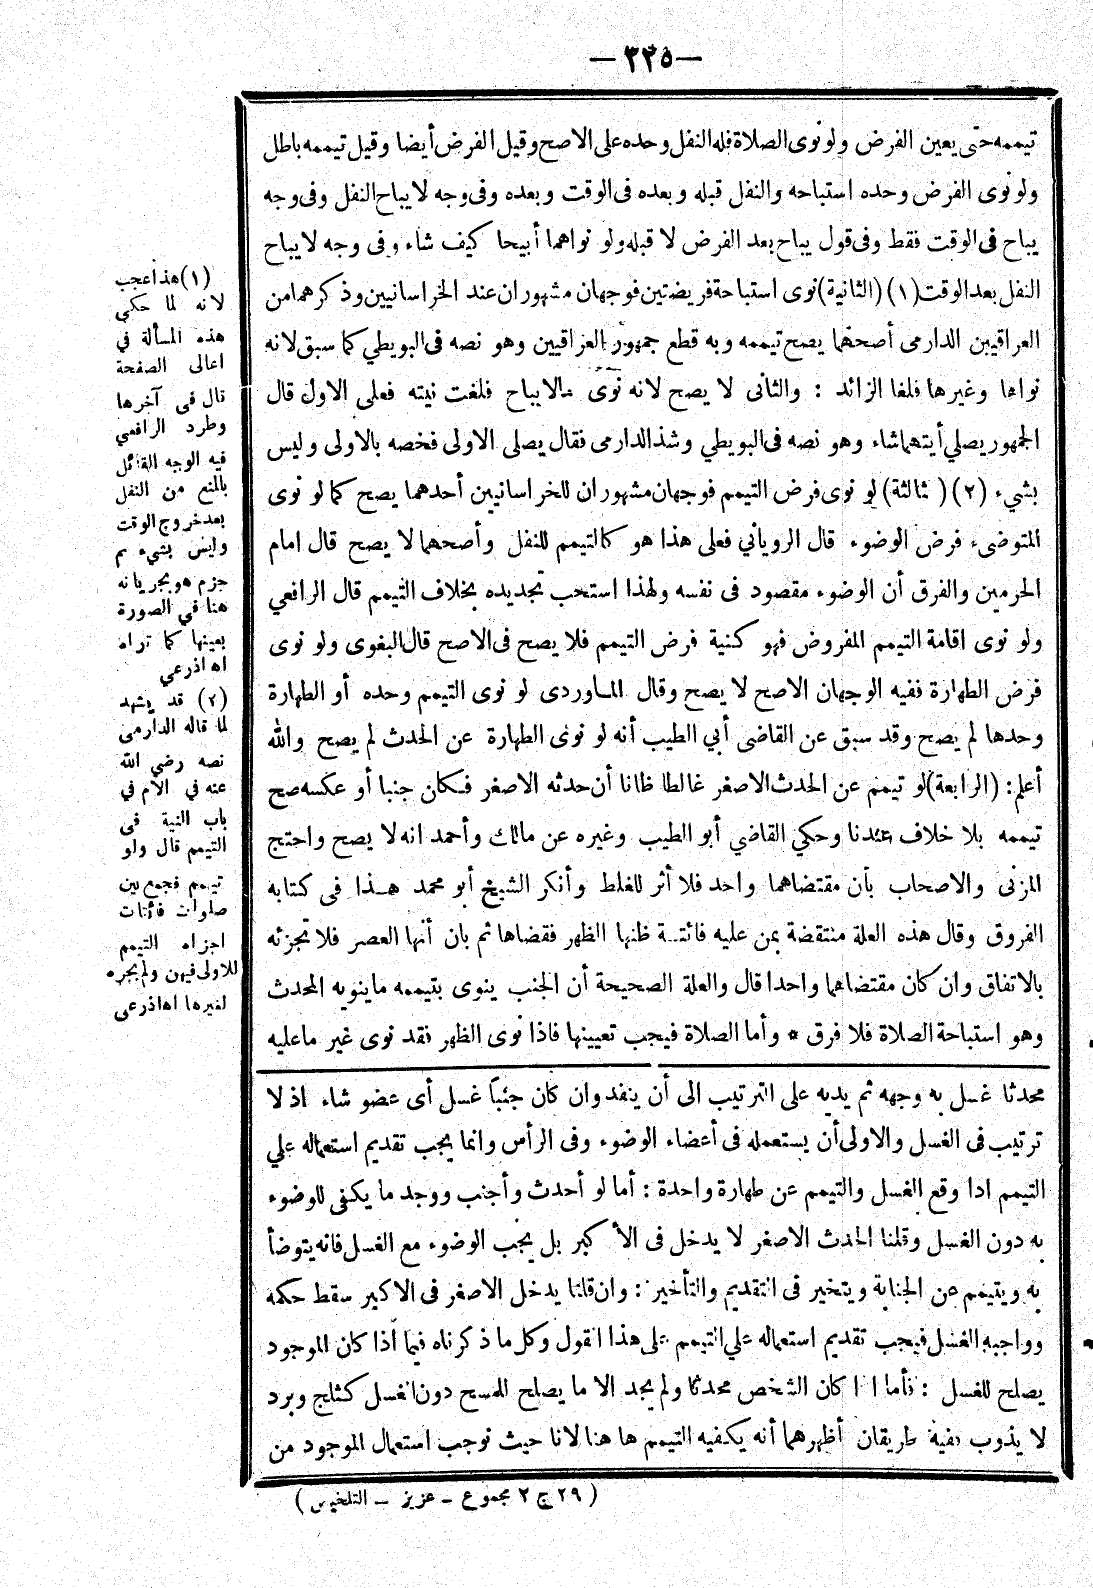 — ٢٢٥ —
تيممه حتى يعين الفرض ولو نوى الصلاة فله النفل وحده على الاصح وقيل الفرض أيضا وقيل تيممه باطل
ولو نوى الفرض وحده استباحه والنفل قبله وبعده فى الوقت وبعده وفى وجه لا يباح النفل وفى وجه
يباح فى الوقت فقط وفى قول يباح بعد الفرض لا قبله ولو نواهما أبيحا كيف شاء وفى وجه لا يباح
النفل بعد الوقت (١) (الثانية) نوى استباحة فريضتين فوجهان مشهوران عند الخراسانيين وذكرهما من
العراقيين الدارمى أصحهما يصح تيممه وبه قطع جمهور العراقيين وهو نصه فى البويطي كما سبق لانه
نواها وغيرها فلغا الزائد : والثانى لا يصح لانه نوى مالا يباح فلغت نيته فعلى الاول قال
الجمهور يصلي أيتهما شاء وهو نصه فى البويطي وشذ الدارمى فقال يصلى الاولى فخصه بالاولى وليس
بشيء (٢) ( ثالثة) لو نوى فرض التيمم فوجهان مشهوران للخراسانيين أحدهما يصح كما لو نوى
المتوضىء فرض الوضوء قال الروياني فعلى هذا هو كالتيمم للنفل وأصحهما لا يصح قال امام
الحرمين والفرق أن الوضوء مقصود فى نفسه ولهذا استحب تجديده بخلاف التيمم قال الرافعي
ولو نوى اقامة التيمم المفروض فهو كنية فرض التيمم فلا يصح فى الاصح قال البغوى ولو نوى
فرض الطهارة ففيه الوجهان الاصح لا يصح وقال الماوردى لو نوى التيمم وحده أو الطهارة
وحدها لم يصح وقد سبق عن القاضى أبي الطيب أنه لو نوى الطهارة عن الحدث لم يصح والله
أعلم : (الرابعة) لو تيمم عن الحدث الاصغر غالطا ظانا أن حدثه الاصغر فكان جنبا أو عكسه صح
تيممه بلا خلاف عندنا وحكي القاضي أبو الطيب وغيره عن مالك وأحمد انه لا يصح واحتج
المزنى والاصحاب بأن مقتضاهما واحد فلا أثر للغلط وأنكر الشيخ أبو محمد هذا فى كتابه
الفروق وقال هذه العلة منتقضة بمن عليه فائتة ظنها الظهر فقضاها ثم بان أنها العصر فلا تجزئه
بالاتفاق وان كان مقتضاهما واحدا قال والعلة الصحيحة أن الجنب ينوى بتيممه ما ينويه المحدث
وهو استباحة الصلاة فلا فرق * وأما الصلاة فيجب تعيينها فاذا نوى الظهر فقد نوى غير ما عليه
محدثا غسل به وجهه ثم يديه على الترتيب الى أن ينفد وان كان جنباً غسل أى عضو شاء اذ لا
ترتيب فى الغسل والاولى أن يستعمله فى أعضاء الوضوء وفى الرأس وانما يجب تقديم استعماله علي
التيمم اذا وقع الغسل والتيمم عن طهارة واحدة : أما لو أحدث وأجنب ووجد ما يكفى للوضوء
به دون الغسل وقلنا الحدث الاصغر لا يدخل فى الأكبر بل يجب الوضوء مع الغسل فانه يتوضأ
به ويتيمم عن الجنابة ويتخير فى التقديم والتأخير : وان قلنا يدخل الاصغر فى الاكبر سقط حكمه
وواجبه الغسل فيجب تقديم استعماله علي التيمم على هذا القول وكل ما ذكرناه فيما أذا كان الموجود
يصلح للغسل : فأما اذا كان الشخص محدثا ولم يجد الا ما يصلح للمسح دون الغسل كثلج وبرد
لا يذوب ففيه طريقان أظهرهما أنه يكفيه التيمم ها هنا لانا حيث نوجب استعمال الموجود من
(١) هذا عجب
لانه لما حكى
هذه المسألة في
اعالى الصفحة
قال فى آخرها
وطرد الرافعي
فيه الوجه القائل
بالمنع من النفل
بعد خروج الوقت
وليس بشيء ثم
جزم هو بجريانه
هنا في الصورة
بعينها كما تراه
اه اذرعي
(٢) قد يشهد
لما قاله الدارمى
نصه رضي الله
عنه في الأم في
باب النية فى
التيمم قال ولو
تيمم فجمع بين
صلوات فائتات
اجزاه التيمم
للاولى فيهن ولم يجزه
لغيرها اه اذرعى
(٢٩ ج ٢ مجموع ـ عزيز ـ التلخيص)